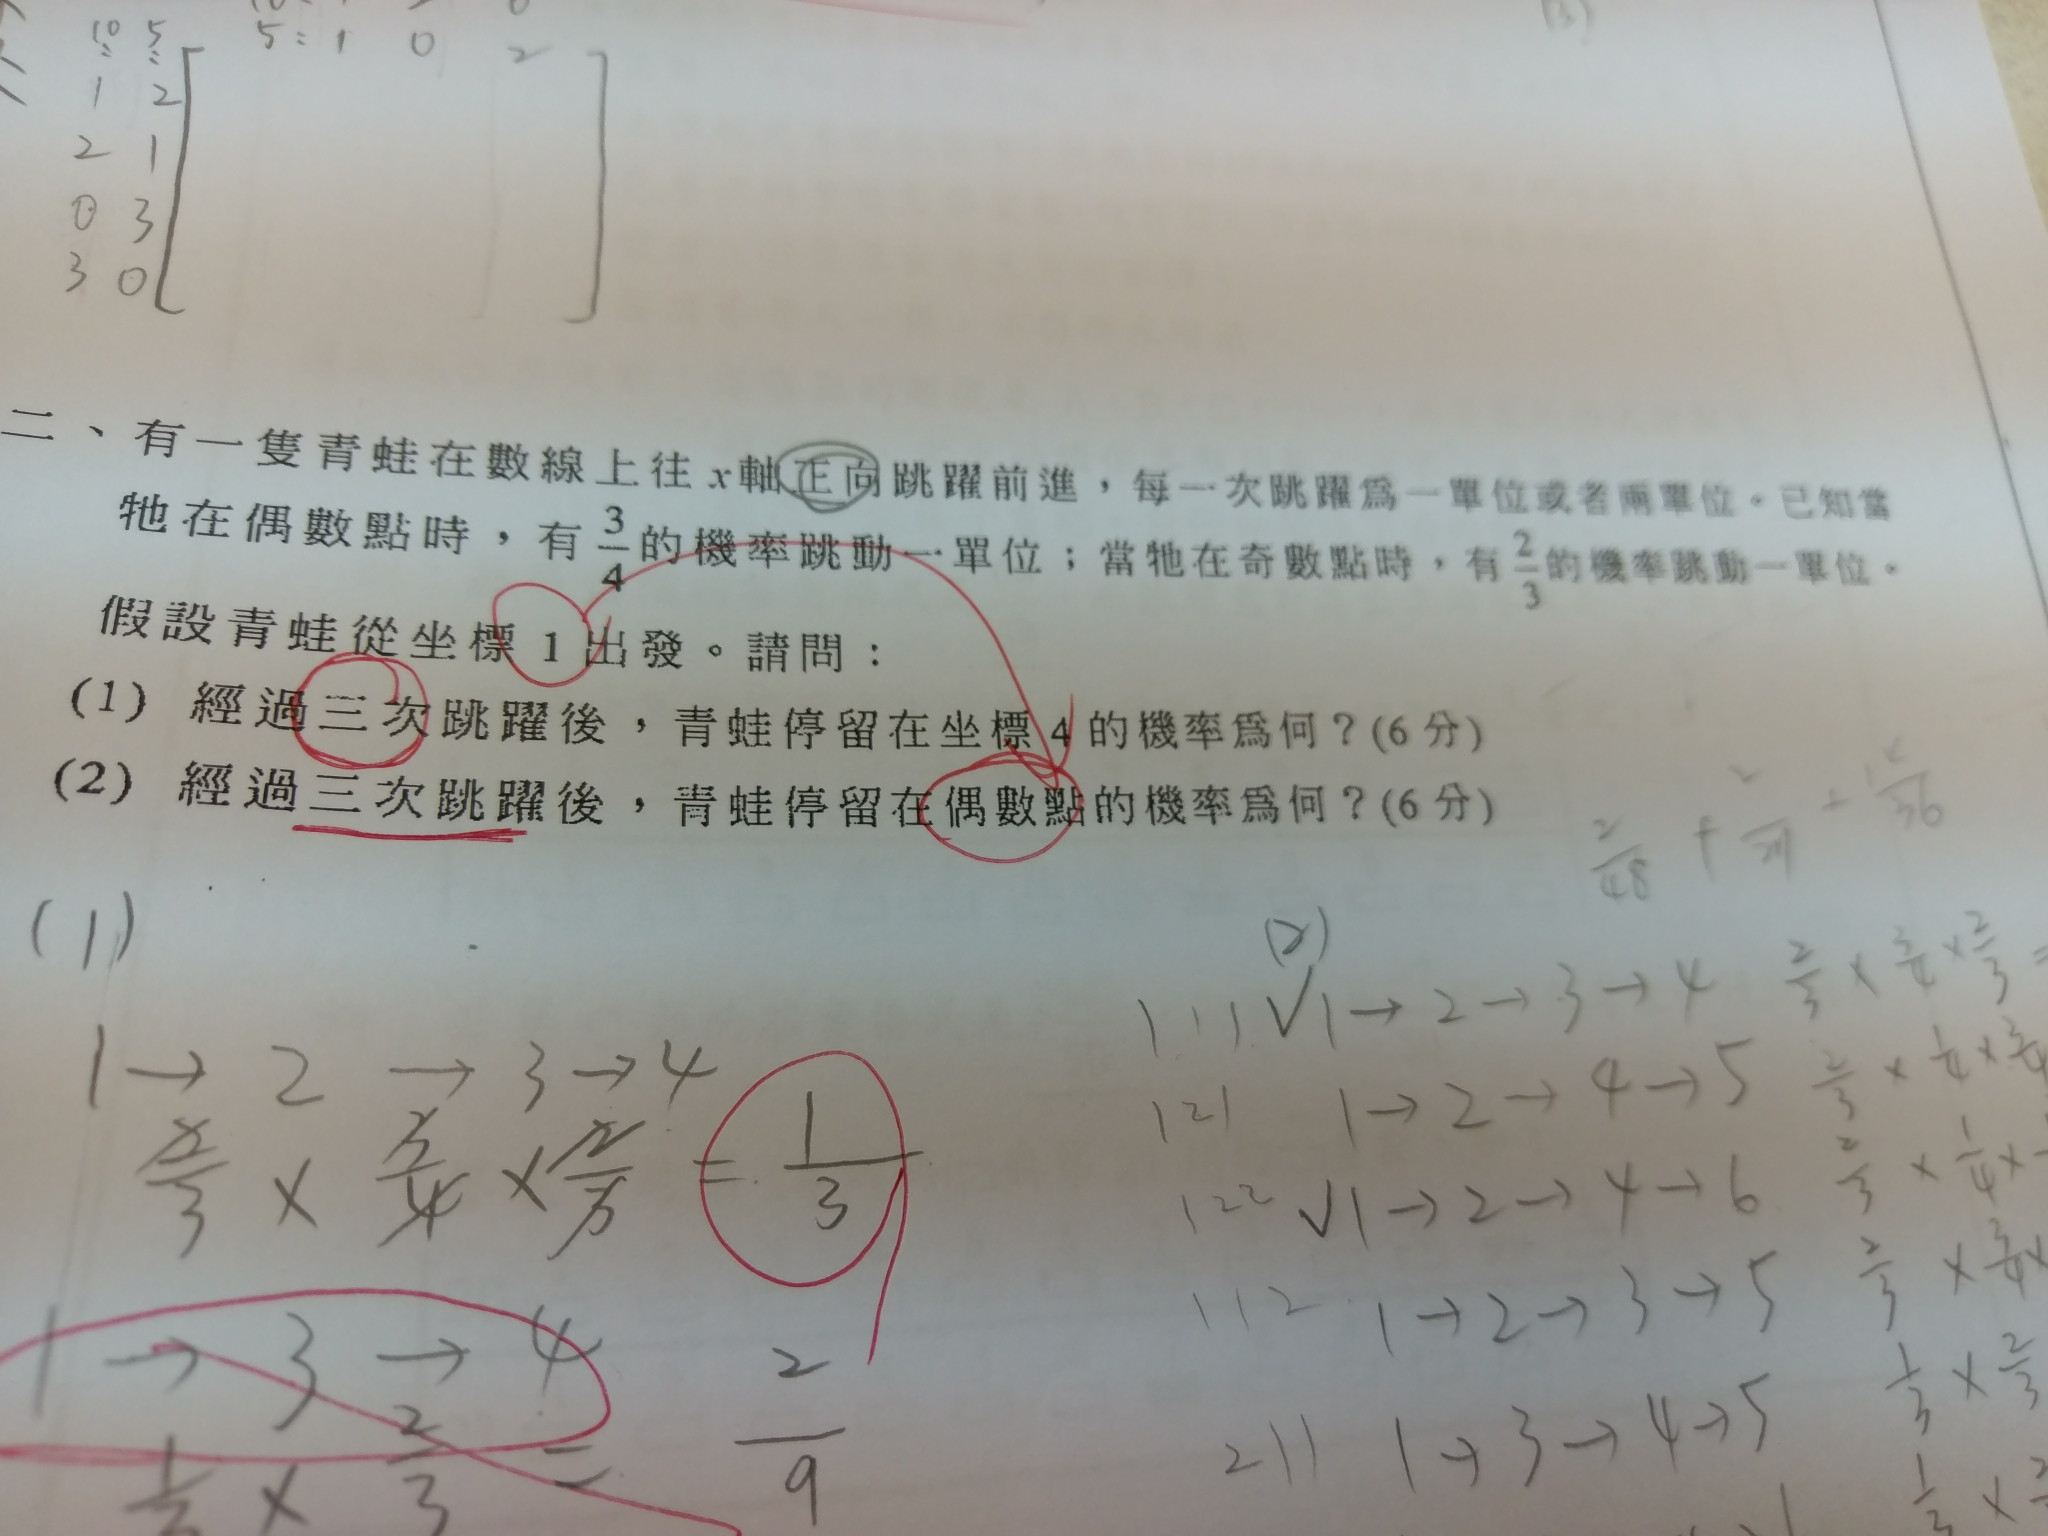 (3)
10 5
5 : 1 0 2
1 2
2 1
0 3
3 0
二、有一隻青蛙在數線上往 x 軸正向跳躍前進，每一次跳躍為一單位或者兩單位。已知當
牠在偶數點時，有 3/4 的機率跳動一單位；當牠在奇數點時，有 2/3 的機率跳動一單位。
假設青蛙從坐標 1 出發。請問：
(1) 經過三次跳躍後，青蛙停留在坐標 4 的機率為何？(6 分)
(2) 經過三次跳躍後，青蛙停留在偶數點的機率為何？(6 分)
(1)
1 → 2 → 3 → 4
2/3 × 3/4 × 2/3 = 1/3
1 → 3 → 4
1/3 × 2/3 = 2/9
2/48 +
(2)
111 √ 1 → 2 → 3 → 4 2/3 × 3/4 × 2/3 =
121 1 → 2 → 4 → 5 2/3 × 1/4 × 3/4
122 √ 1 → 2 → 4 → 6 2/3 × 1/4 ×
112 1 → 2 → 3 → 5 2/3 × 3/4 ×
211 1 → 3 → 4 → 5 1/3 × 2/3
1/3 ×